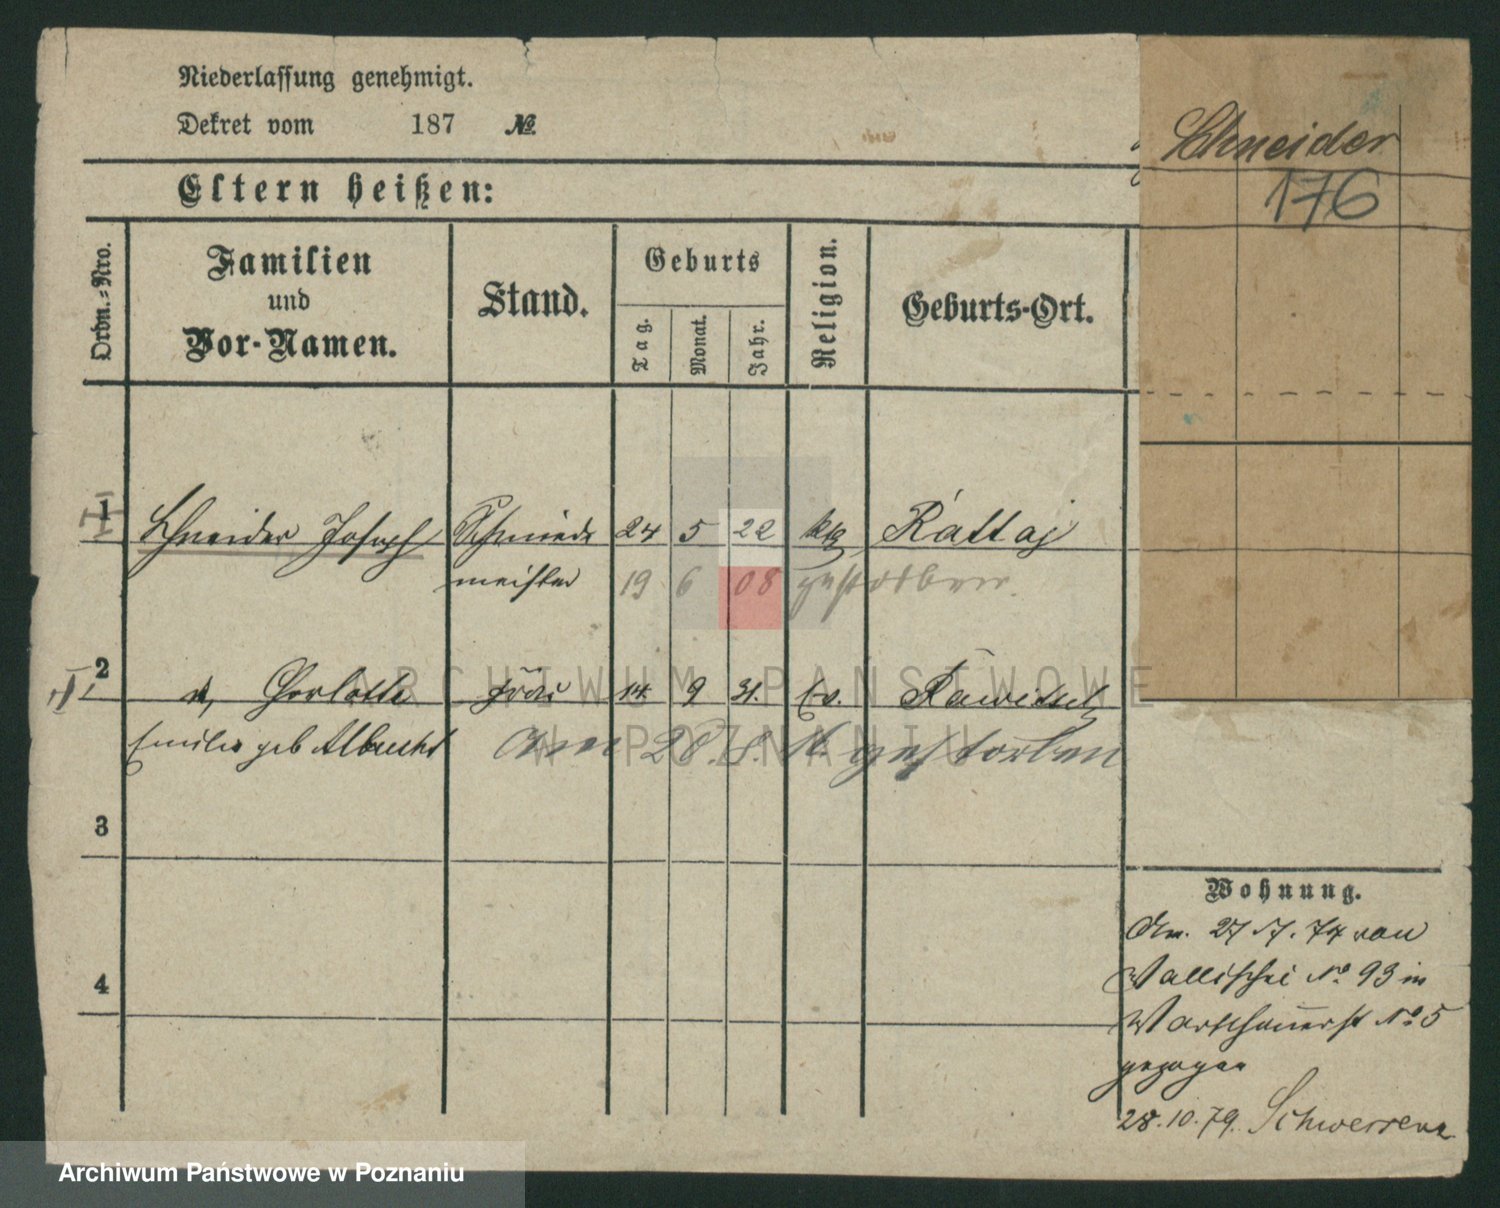 Niederlassung genehmigt.
Dekret vom 187 No
Schneider
176
Eltern heißen:
Ordn.-Nro.
Familien
und
Vor-Namen.
Stand.
Geburts
Tag.
Monat.
Jahr.
Religion.
Geburts-Ort.
1 Schneider Joseph Schmiede 24 5 22 kth Rattaj
meister 19 6 08 gestorben.
2 Charlotte Frau 14 9 31. Ev. Rawitsch
Emilie geb Albrecht Am 28. 8. 16 gestorben
3
4
Wohnung.
Am. 27/7. 74 von
Wallischei No 93 in
Warschauerst No 5
gezogen
28.10.79. Schwersenz
ARCHIWUM PAŃSTWOWE
W POZNANIU
Archiwum Państwowe w Poznaniu